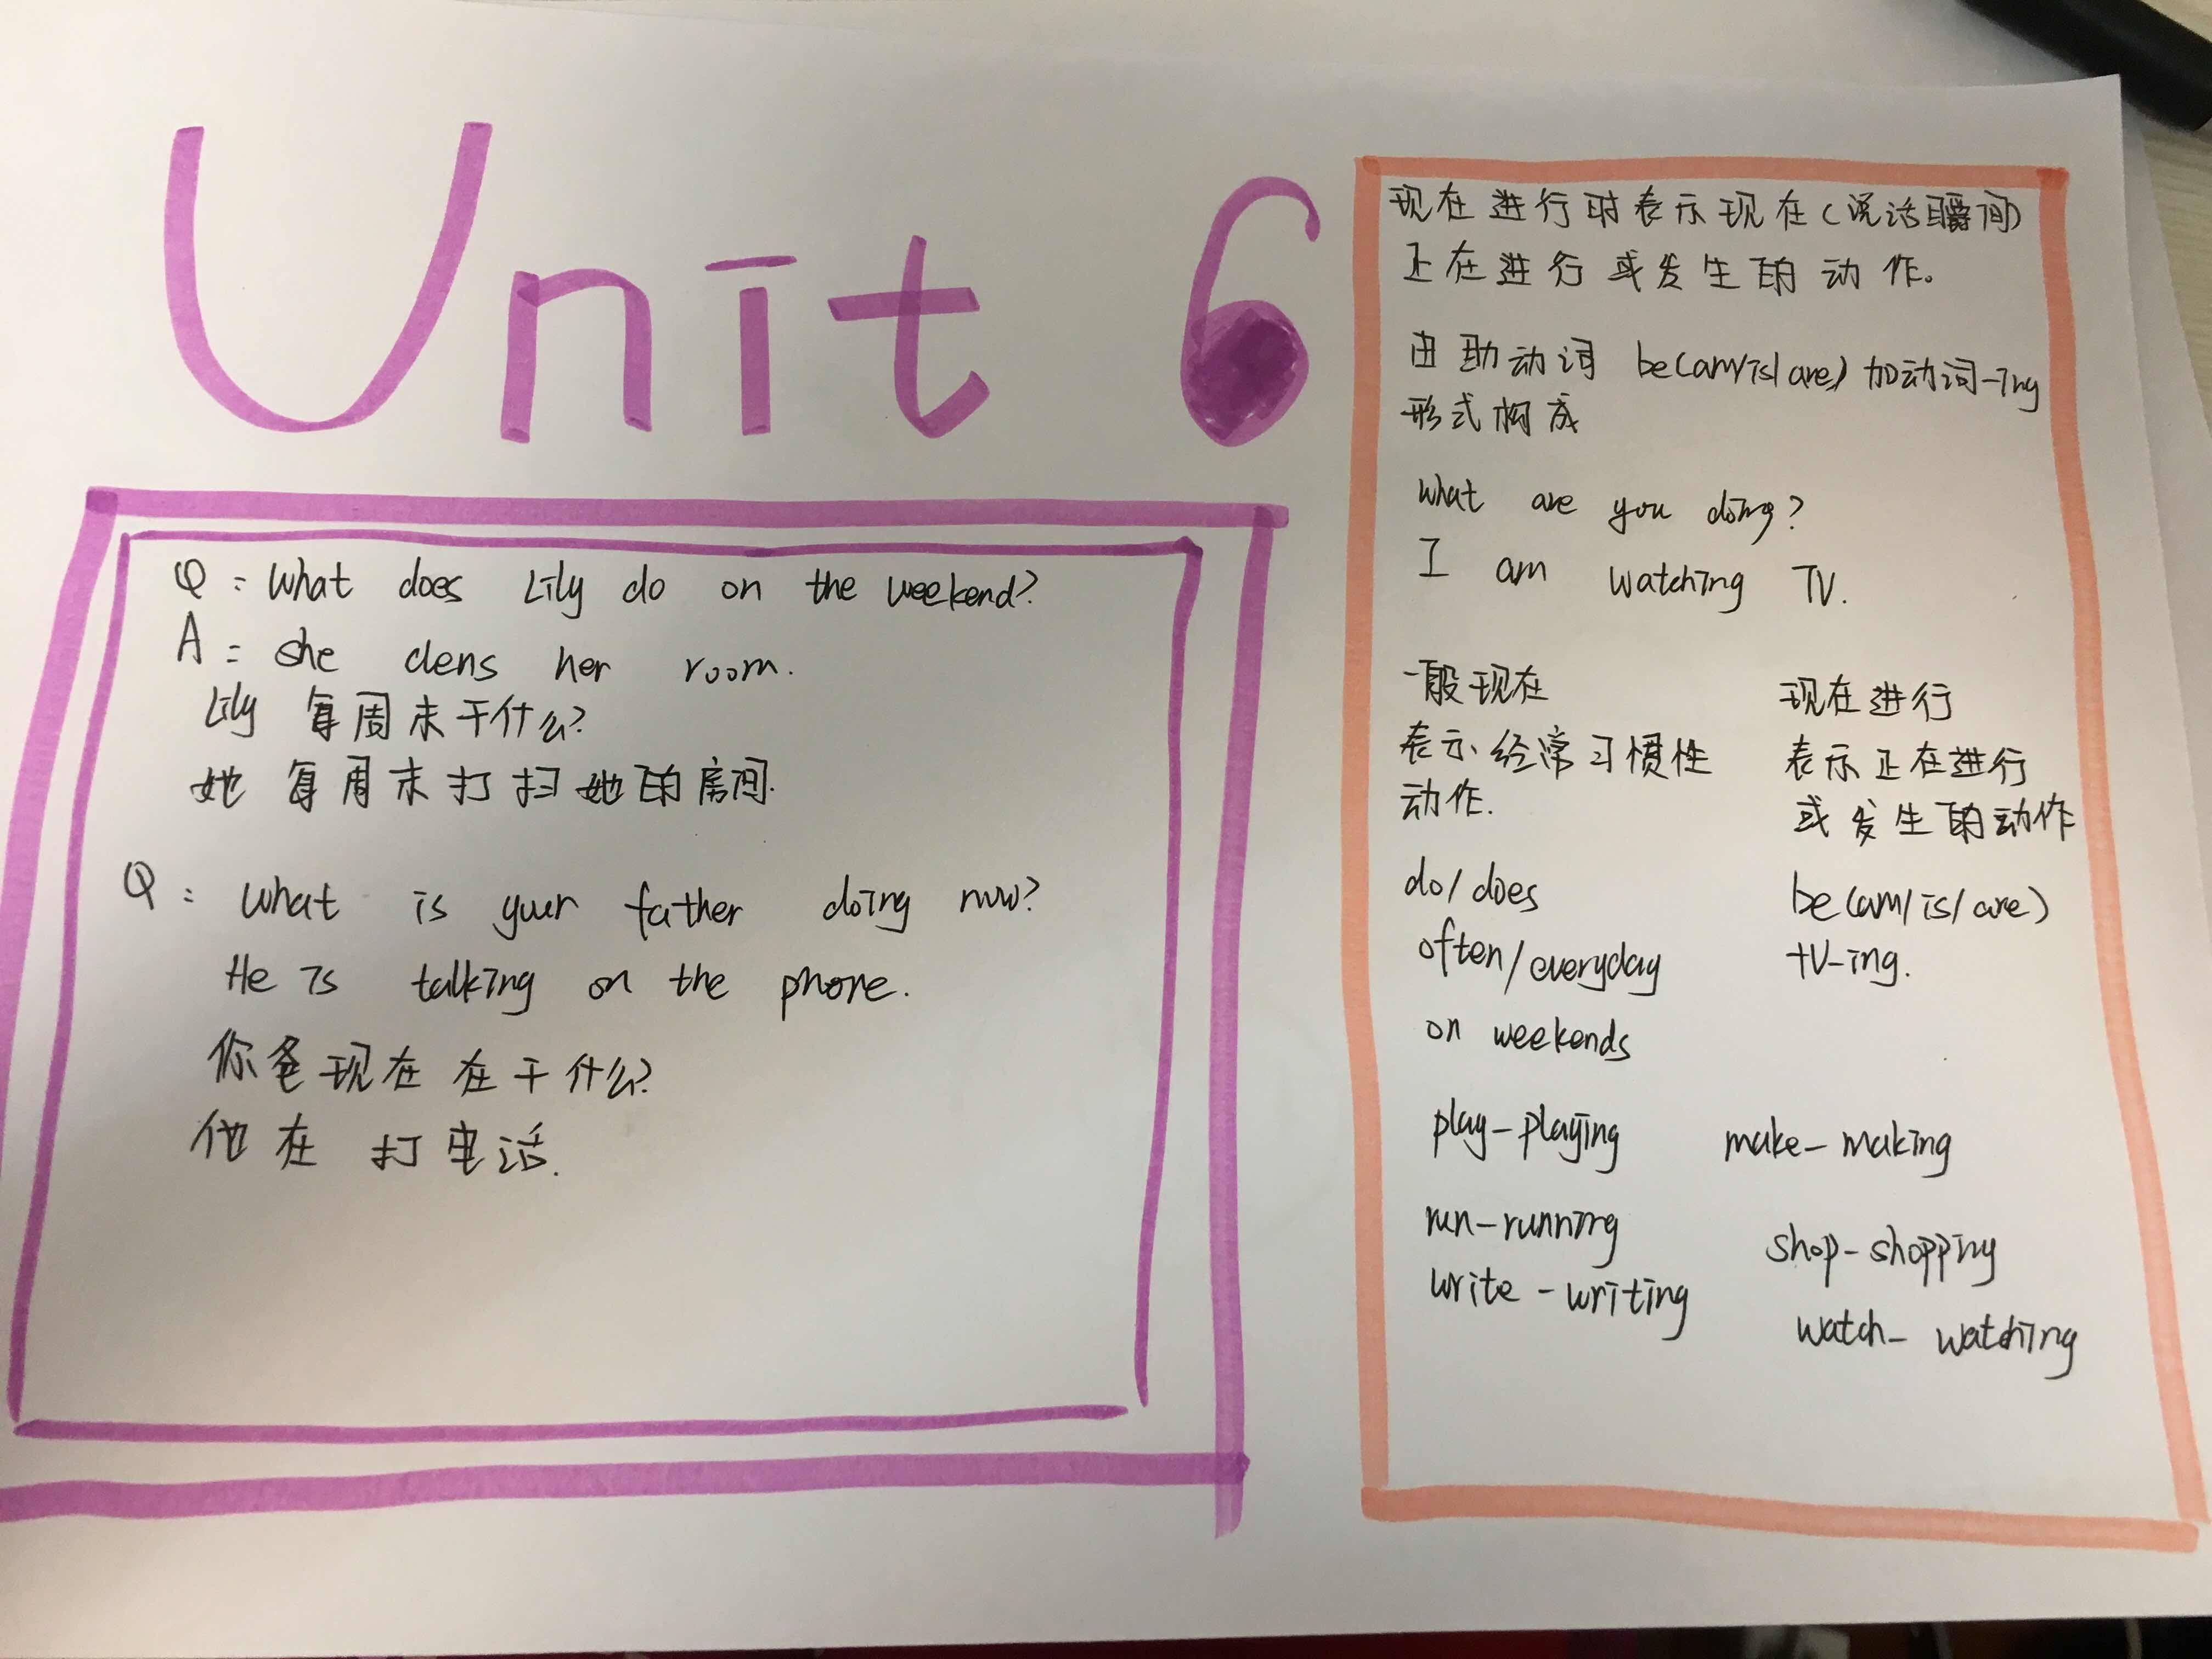 Unit 6
Q: What does Lily do on the weekend?
A: she clens her room.
Lily 每周末干什么?
她每周末打扫她的房间.
Q: what is your father doing now?
He is talking on the phone.
你爸现在在干什么?
他在打电话.
现在进行时表示现在(说话瞬间)
正在进行或发生的动作。
由助动词 be(am/is/are) 加动词-ing
形式构成
what are you doing?
I am watching TV.
一般现在
表示经常习惯性
动作.
do/does
often/everyday
on weekends
现在进行
表示正在进行
或发生的动作
be(am/is/are)
+V-ing.
play-playing make-making
run-running shop-shopping
write-writing watch-watching